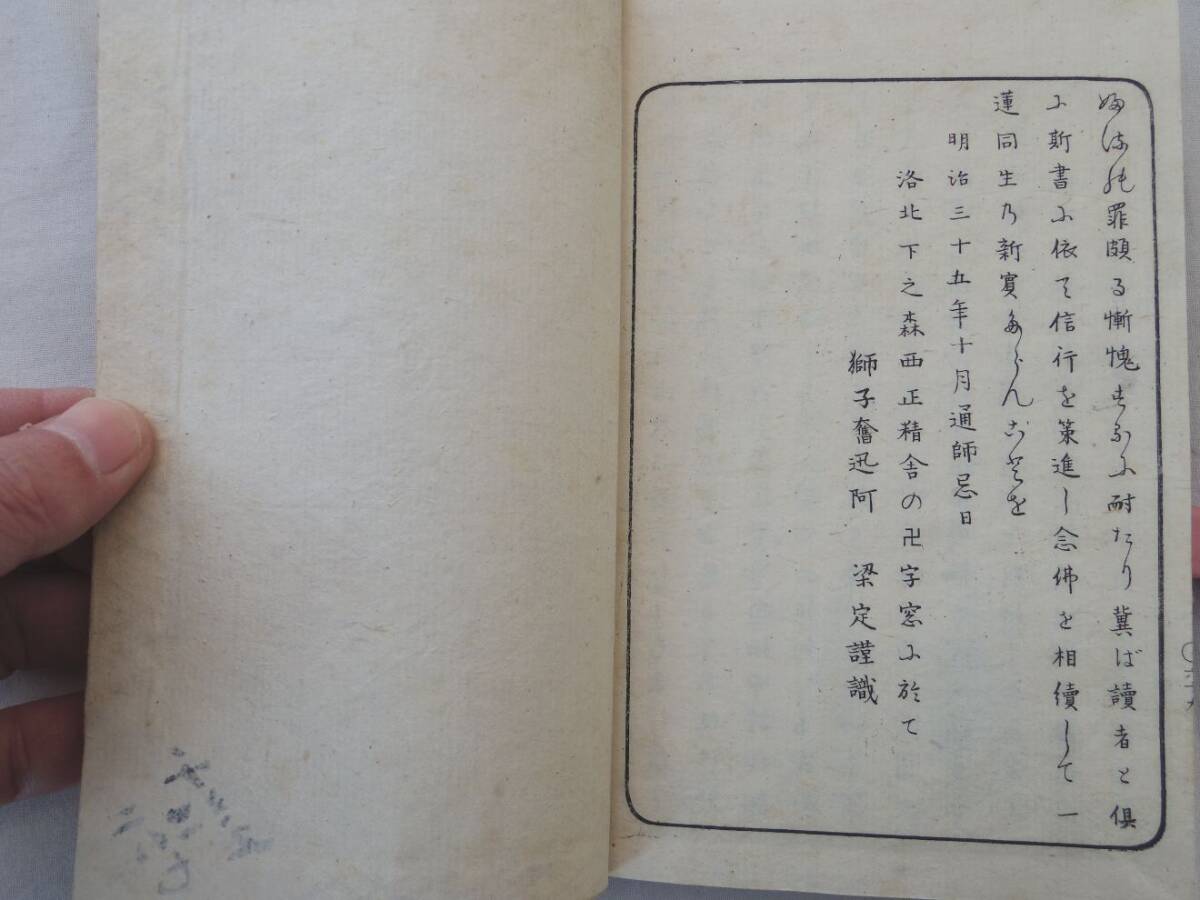 罪頗る慚愧するに耐たり冀ば讀者と俱
に斯書に依て信行を策進し念佛を相續して一
蓮同生乃新賓たらんことを
明治三十五年十月通師忌日
洛北下之森西正精舎の卍字窓に於て
獅子奮迅阿　梁定謹識